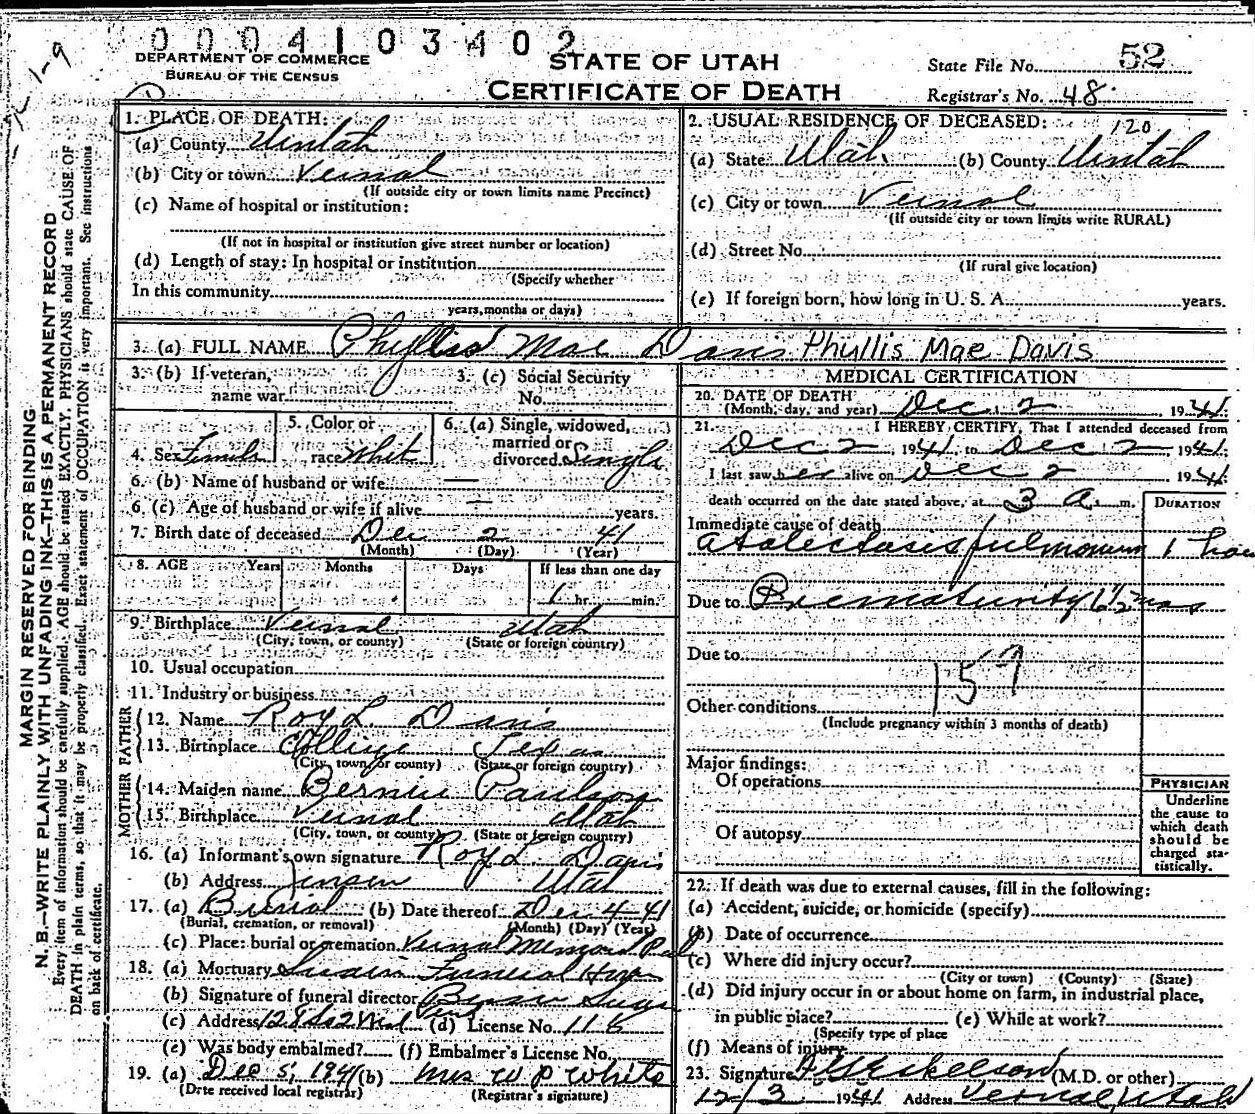 0004103402
DEPARTMENT OF COMMERCE
BUREAU OF THE CENSUS
STATE OF UTAH
CERTIFICATE OF DEATH
State File No. 52
Registrar's No. 48
MARGIN RESERVED FOR BINDING
N. B.—WRITE PLAINLY WITH UNFADING INK—THIS IS A PERMANENT RECORD
Every item of information should be carefully supplied. AGE should be stated EXACTLY. PHYSICIANS should state CAUSE OF
DEATH in plain terms, so that it may be properly classified. Exact statement of OCCUPATION is very important. See instructions
on back of certificate.
1. PLACE OF DEATH:
(a) County Uintah
(b) City or town Vernal
(If outside city or town limits name Precinct)
(c) Name of hospital or institution:
(If not in hospital or institution give street number or location)
(d) Length of stay: In hospital or institution
(Specify whether
In this community
years, months or days)
2. USUAL RESIDENCE OF DECEASED: 120
(a) State Utah (b) County Uintah
(c) City or town Vernal
(If outside city or town limits write RURAL)
(d) Street No.
(If rural give location)
(e) If foreign born, how long in U. S. A. years.
3. (a) FULL NAME Phyllis Mae Davis Phyllis Mae Davis
3. (b) If veteran, name war
3. (c) Social Security No.
4. Sex Female
5. Color or race Whit
6. (a) Single, widowed, married or divorced Single
6. (b) Name of husband or wife —
6. (c) Age of husband or wife if alive — years.
7. Birth date of deceased Dec 2 41
(Month) (Day) (Year)
8. AGE Years Months Days If less than one day
1 hr. min.
9. Birthplace Vernal Utah
(City, town, or county) (State or foreign country)
10. Usual occupation
11. Industry or business
FATHER
12. Name Roy L. Davis
13. Birthplace College Texas
(City, town, or county) (State or foreign country)
MOTHER
14. Maiden name Bernice Paulson
15. Birthplace Vernal Utah
(City, town, or county) (State or foreign country)
16. (a) Informant's own signature Roy L. Davis
(b) Address Jensen Utah
17. (a) Burial (b) Date thereof Dec 4-41
(Burial, cremation, or removal) (Month) (Day) (Year)
(c) Place: burial or cremation Vernal Memorial
18. (a) Mortuary Swain Funeral Home
(b) Signature of funeral director
(c) Address 128 So 2 W (d) License No. 116
(e) Was body embalmed? (f) Embalmer's License No.
19. (a) Dec 5, 1941 (b) Mrs W P White
(Date received local registrar) (Registrar's signature)
MEDICAL CERTIFICATION
20. DATE OF DEATH
(Month, day, and year) Dec 2, 1941
21. I HEREBY CERTIFY, That I attended deceased from
Dec 2, 1941, to Dec 2, 1941.
I last saw her alive on Dec 2, 1941
death occurred on the date stated above, at 3 a. m.
DURATION
Immediate cause of death
atalectasis pulmonum 1 hou
Due to Prematurity 6½ mos
Due to
157
Other conditions
(Include pregnancy within 3 months of death)
Major findings:
Of operations
Of autopsy
PHYSICIAN
Underline the cause to which death should be charged statistically.
22. If death was due to external causes, fill in the following:
(a) Accident, suicide, or homicide (specify)
(b) Date of occurrence
(c) Where did injury occur?
(City or town) (County) (State)
(d) Did injury occur in or about home on farm, in industrial place,
in public place? (e) While at work?
(Specify type of place
(f) Means of injury
23. Signature (M.D. or other)
12/3 1941 Address Vernal, Utah